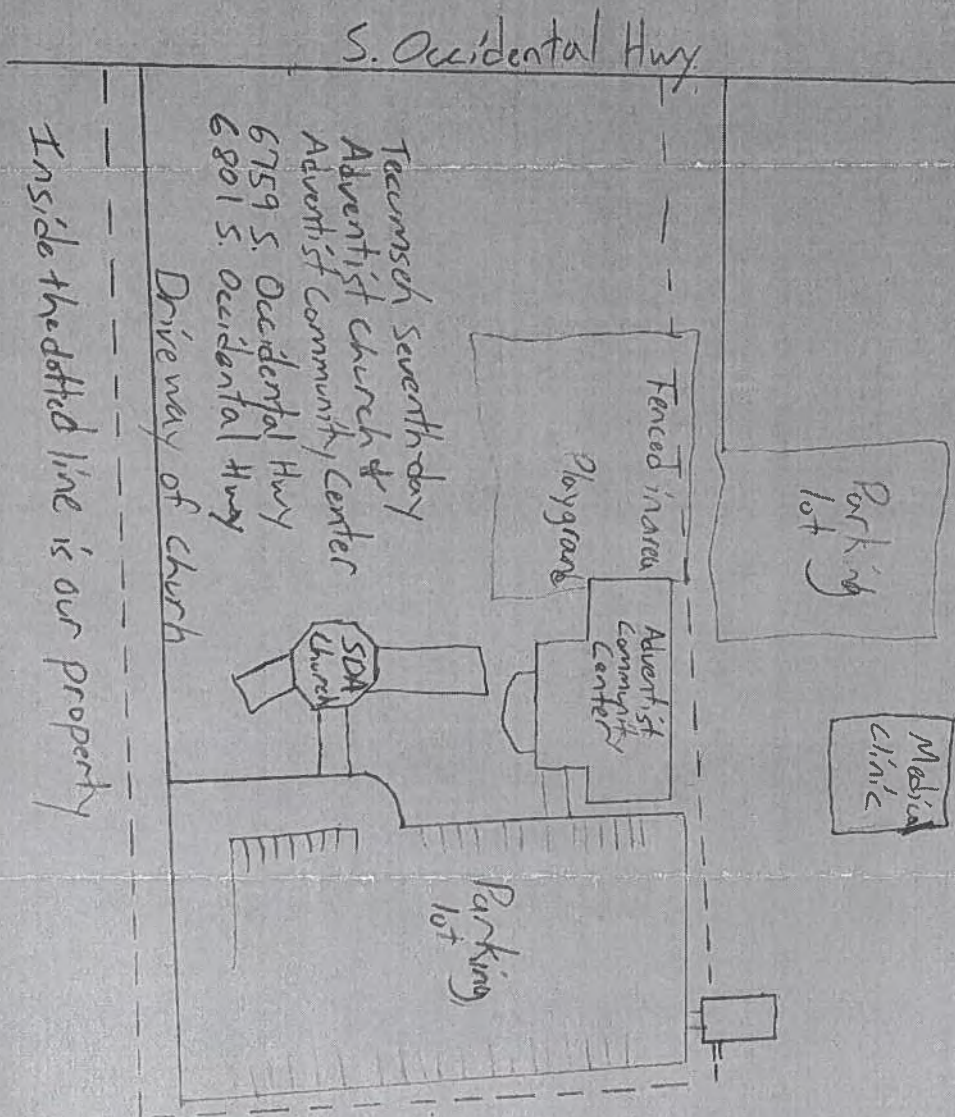 S. Occidental Hwy.
Parking
lot
Medical
Clinic
Fenced in area
Playgrand
Adventist
Community
Center
Tecumseh Seventh-day
Adventist Church &
Adventist Community Center
6759 S. Occidental Hwy
6801 S. Occidental Hwy
SDA
Church
Parking
lot
Driveway of church
Inside the dotted line is our property